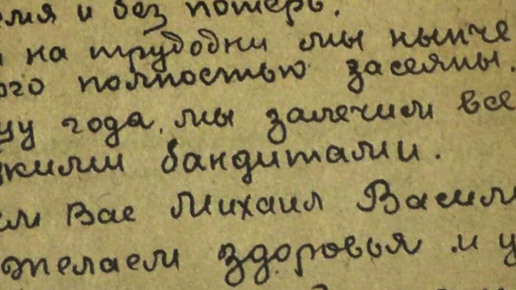 емя и без потерь.
на трудодни мы нынче
ого полностью засеяны.
цу года, мы залечим все
кими бандитами.
ем Вас Михаил Васил
желаем здоровья и у